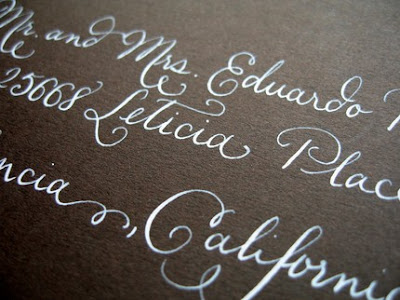 Mr. and Mrs. Eduardo
25668 Leticia Place
ncia, Californi